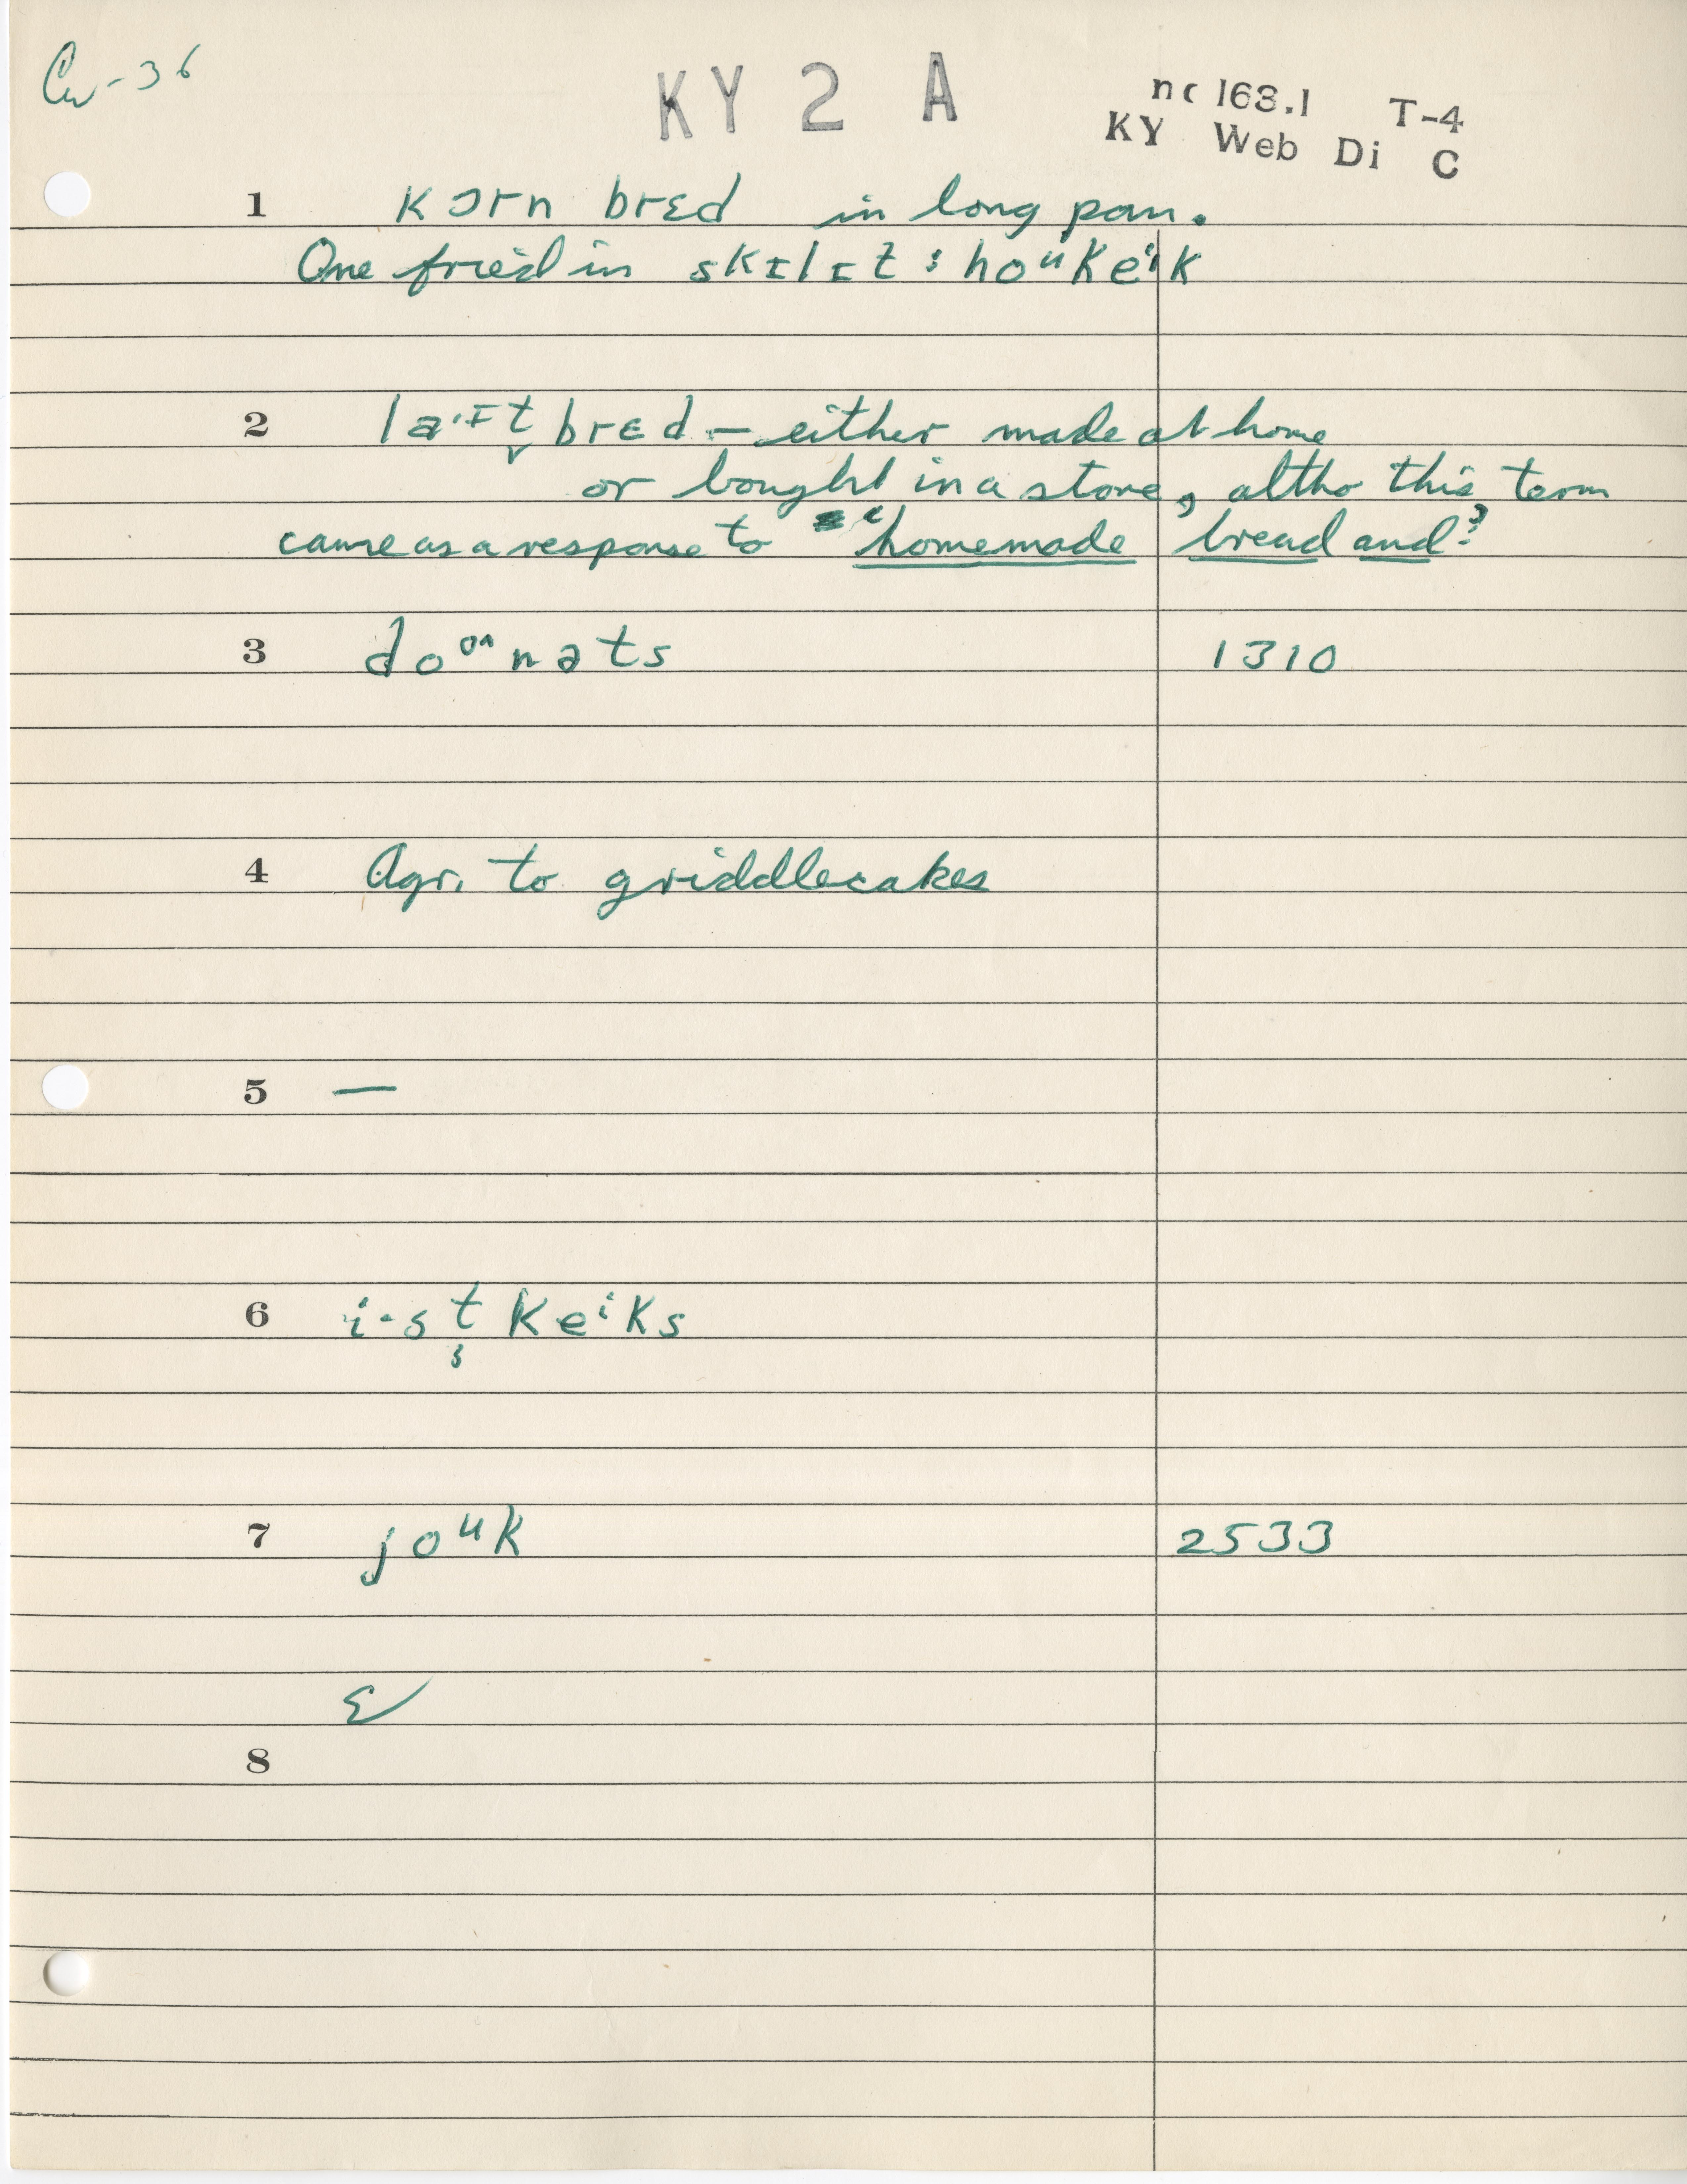 Cw-36
KY 2 A
nc 163.1 T-4
KY Web Di C
1 kɔrn brɛd in long pan.
One fried in skɪlɪt : hoᵘkeⁱk
2 laˑɪt̬ brɛd — either made at home
or bought in a store, altho this term
came as a response to "homemade bread and?
3 doᵒʊnəts 1310
4 Agr. to griddlecakes
5 —
6 i·st keⁱks
7 joᵘk 2533
8